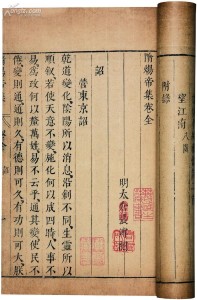 附錄
望江南八闋
隋煬帝集卷全
明太
詔
營東京詔
乾道變化陰陽所以消息沿創不同生靈所以
順叙若使天意不變施化何以成四時人事不
易為政何以釐萬姓易不云乎通其變使民不
倦變則通通則久有德則可久有功則可大朕